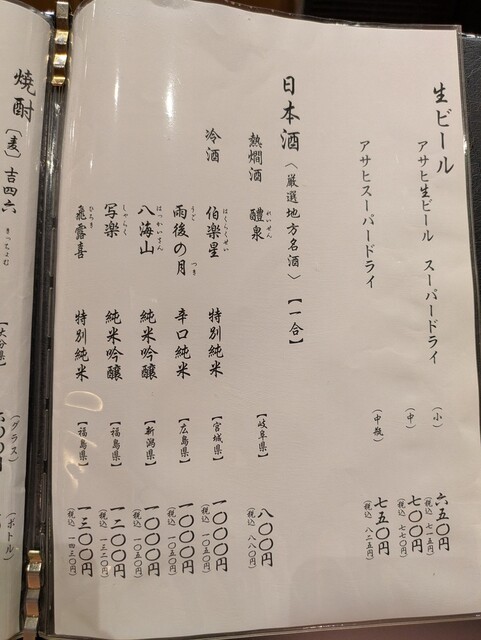 生ビール
アサヒ生ビール スーパードライ (小) 六五〇円 (税込 七一五円)
(中) 七〇〇円 (税込 七七〇円)
アサヒスーパードライ (中瓶) 七五〇円 (税込 八二五円)
日本酒 〈厳選地方名酒〉 【一合】
熱燗酒 醴泉 れいせん 【岐阜県】 八〇〇円 (税込 八八〇円)
冷酒 伯楽星 はくらくせい 特別純米 【宮城県】 一〇〇〇円 (税込 一〇五〇円)
雨後の月 うご つき 辛口純米 【広島県】 一〇〇〇円 (税込 一〇五〇円)
八海山 はっかいさん 純米吟醸 【新潟県】 一〇〇〇円 (税込 一〇五〇円)
写楽 しゃらく 純米吟醸 【福島県】 一二〇〇円 (税込 一三二〇円)
飛露喜 ひろき 特別純米 【福島県】 一三〇〇円 (税込 一四三〇円)
焼酎
〔麦〕 吉四六 きっちょむ 【大分県】 (グラス) 六〇〇円
(ボトル)